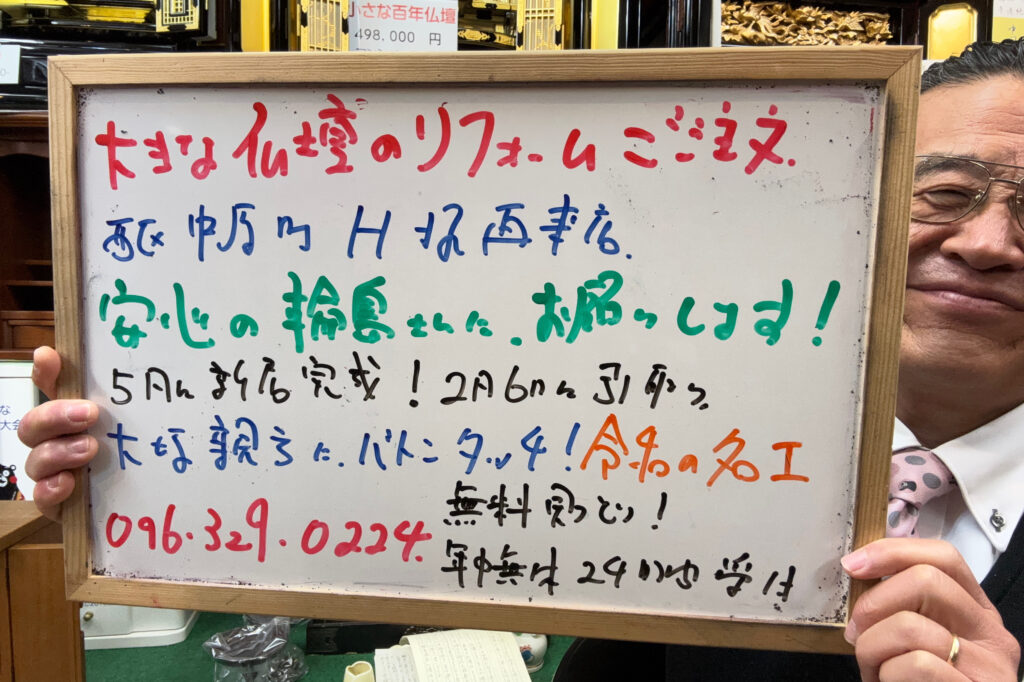 小さな百年仏壇
498.000 円
大きな仏壇のリフォームご注文.
西区中原町 H様再来店.
安心の輪島さんに.お届けします!
5月に新店完成!2月6日に引取り
大塚親方に.バトンタッチ!令和の名工
096.329.0224.
無料見つもり!
年中無休 24時間受付
な
大会